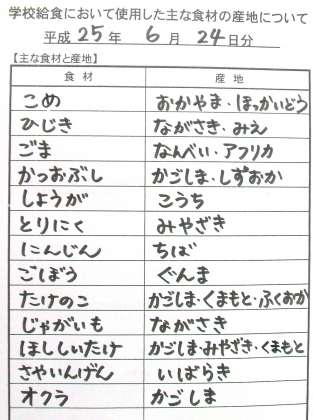 学校給食において使用した主な食材の産地について
平成 25 年 6 月 24 日分
【主な食材と産地】
食材 産地
こめ おかやま・ほっかいどう
ひじき ながさき・みえ
ごま なんべい・アフリカ
かつおぶし かごしま・しずおか
しょうが こうち
とりにく みやざき
にんじん ちば
ごぼう ぐんま
たけのこ かごしま・くまもと・ふくおか
じゃがいも ながさき
ほししいたけ かごしま・みやざき・くまもと
さやいんげん いばらき
オクラ かごしま